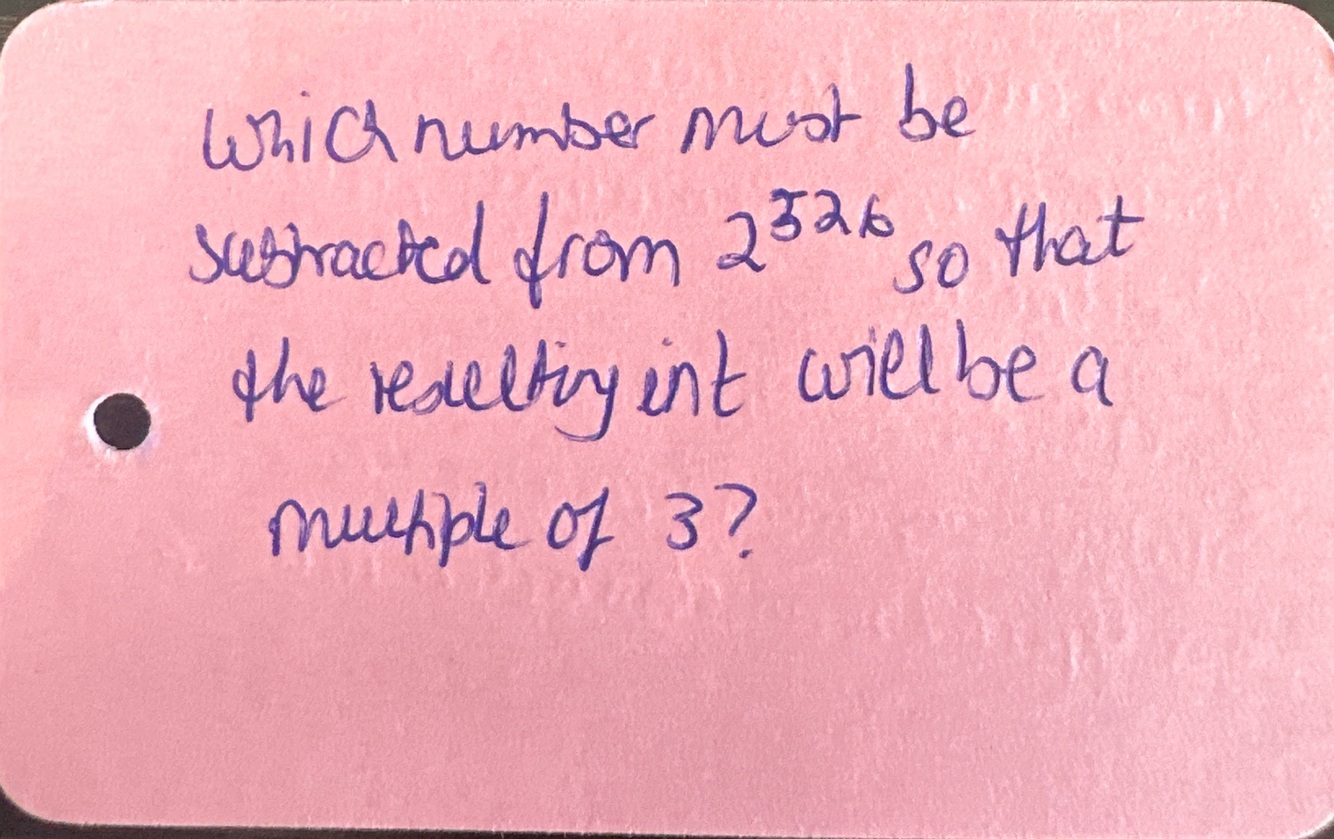 Which number must be
subtracted from 2⁵²⁶ so that
the resulting int will be a
multiple of 3?